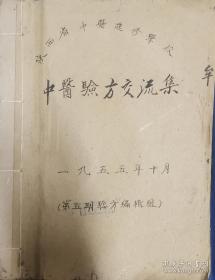 陕西省中医进修学校
中醫驗方交流集
一九五五年十月
(第五期驗方編輯組)